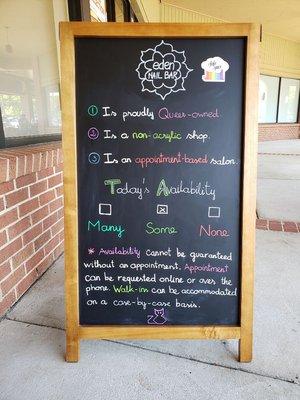 eden
NAIL BAR
① Is proudly Queer-owned.
② Is a non-acrylic shop.
③ Is an appointment-based salon.
Today's Availability
Many Some None
* Availability cannot be guaranteed
without an appointment. Appointment
can be requested online or over the
phone. Walk-ins can be accommodated
on a case-by-case basis.